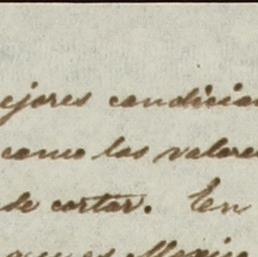 ejores condicio
como los valore
de cortar. En